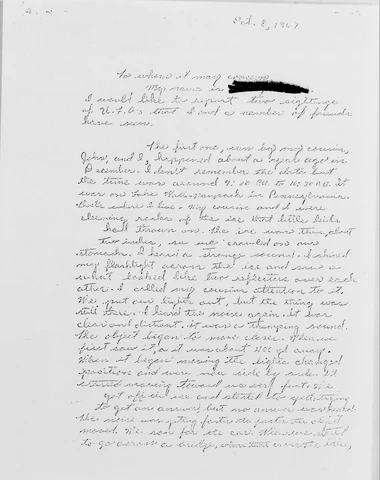 Oct. 8, 1967
To whom it may concern,
My name is
I would like to report two sightings
of U.F.O's that I and a number of friends
have seen.
The first one, seen by my cousin,
John, and I, happened about a year ago in
December. I don't remember the date but
the time was around 9:30 P.M. to 10:30 P.M. It
was on Lake in Pennsylvania.
that's where I live. My cousin and I were
cleaning rocks off the ice that little kids
had thrown on. The ice was then about
two inches, so we crawled on our
stomach. I heard a strange sound. I shined
my flashlight across the ice and saw a
what looked like two reflectors over each
other. I called my cousins attention to it.
We put our lights out, but the thing was
still there. I heard the noise again. It was
clear and distant. It was a thumping sound.
The object began to move closer. When we
first saw it, it was about yd away.
When it began moving the lights changed
position and were now side by side. It
started moving toward us very fast. We
got off the ice and started to yell, trying
to get an answer, but no answer was heard.
The noise was getting faster the faster the object
moved. We ran for the car. When we started
to go across a bridge, the lake,